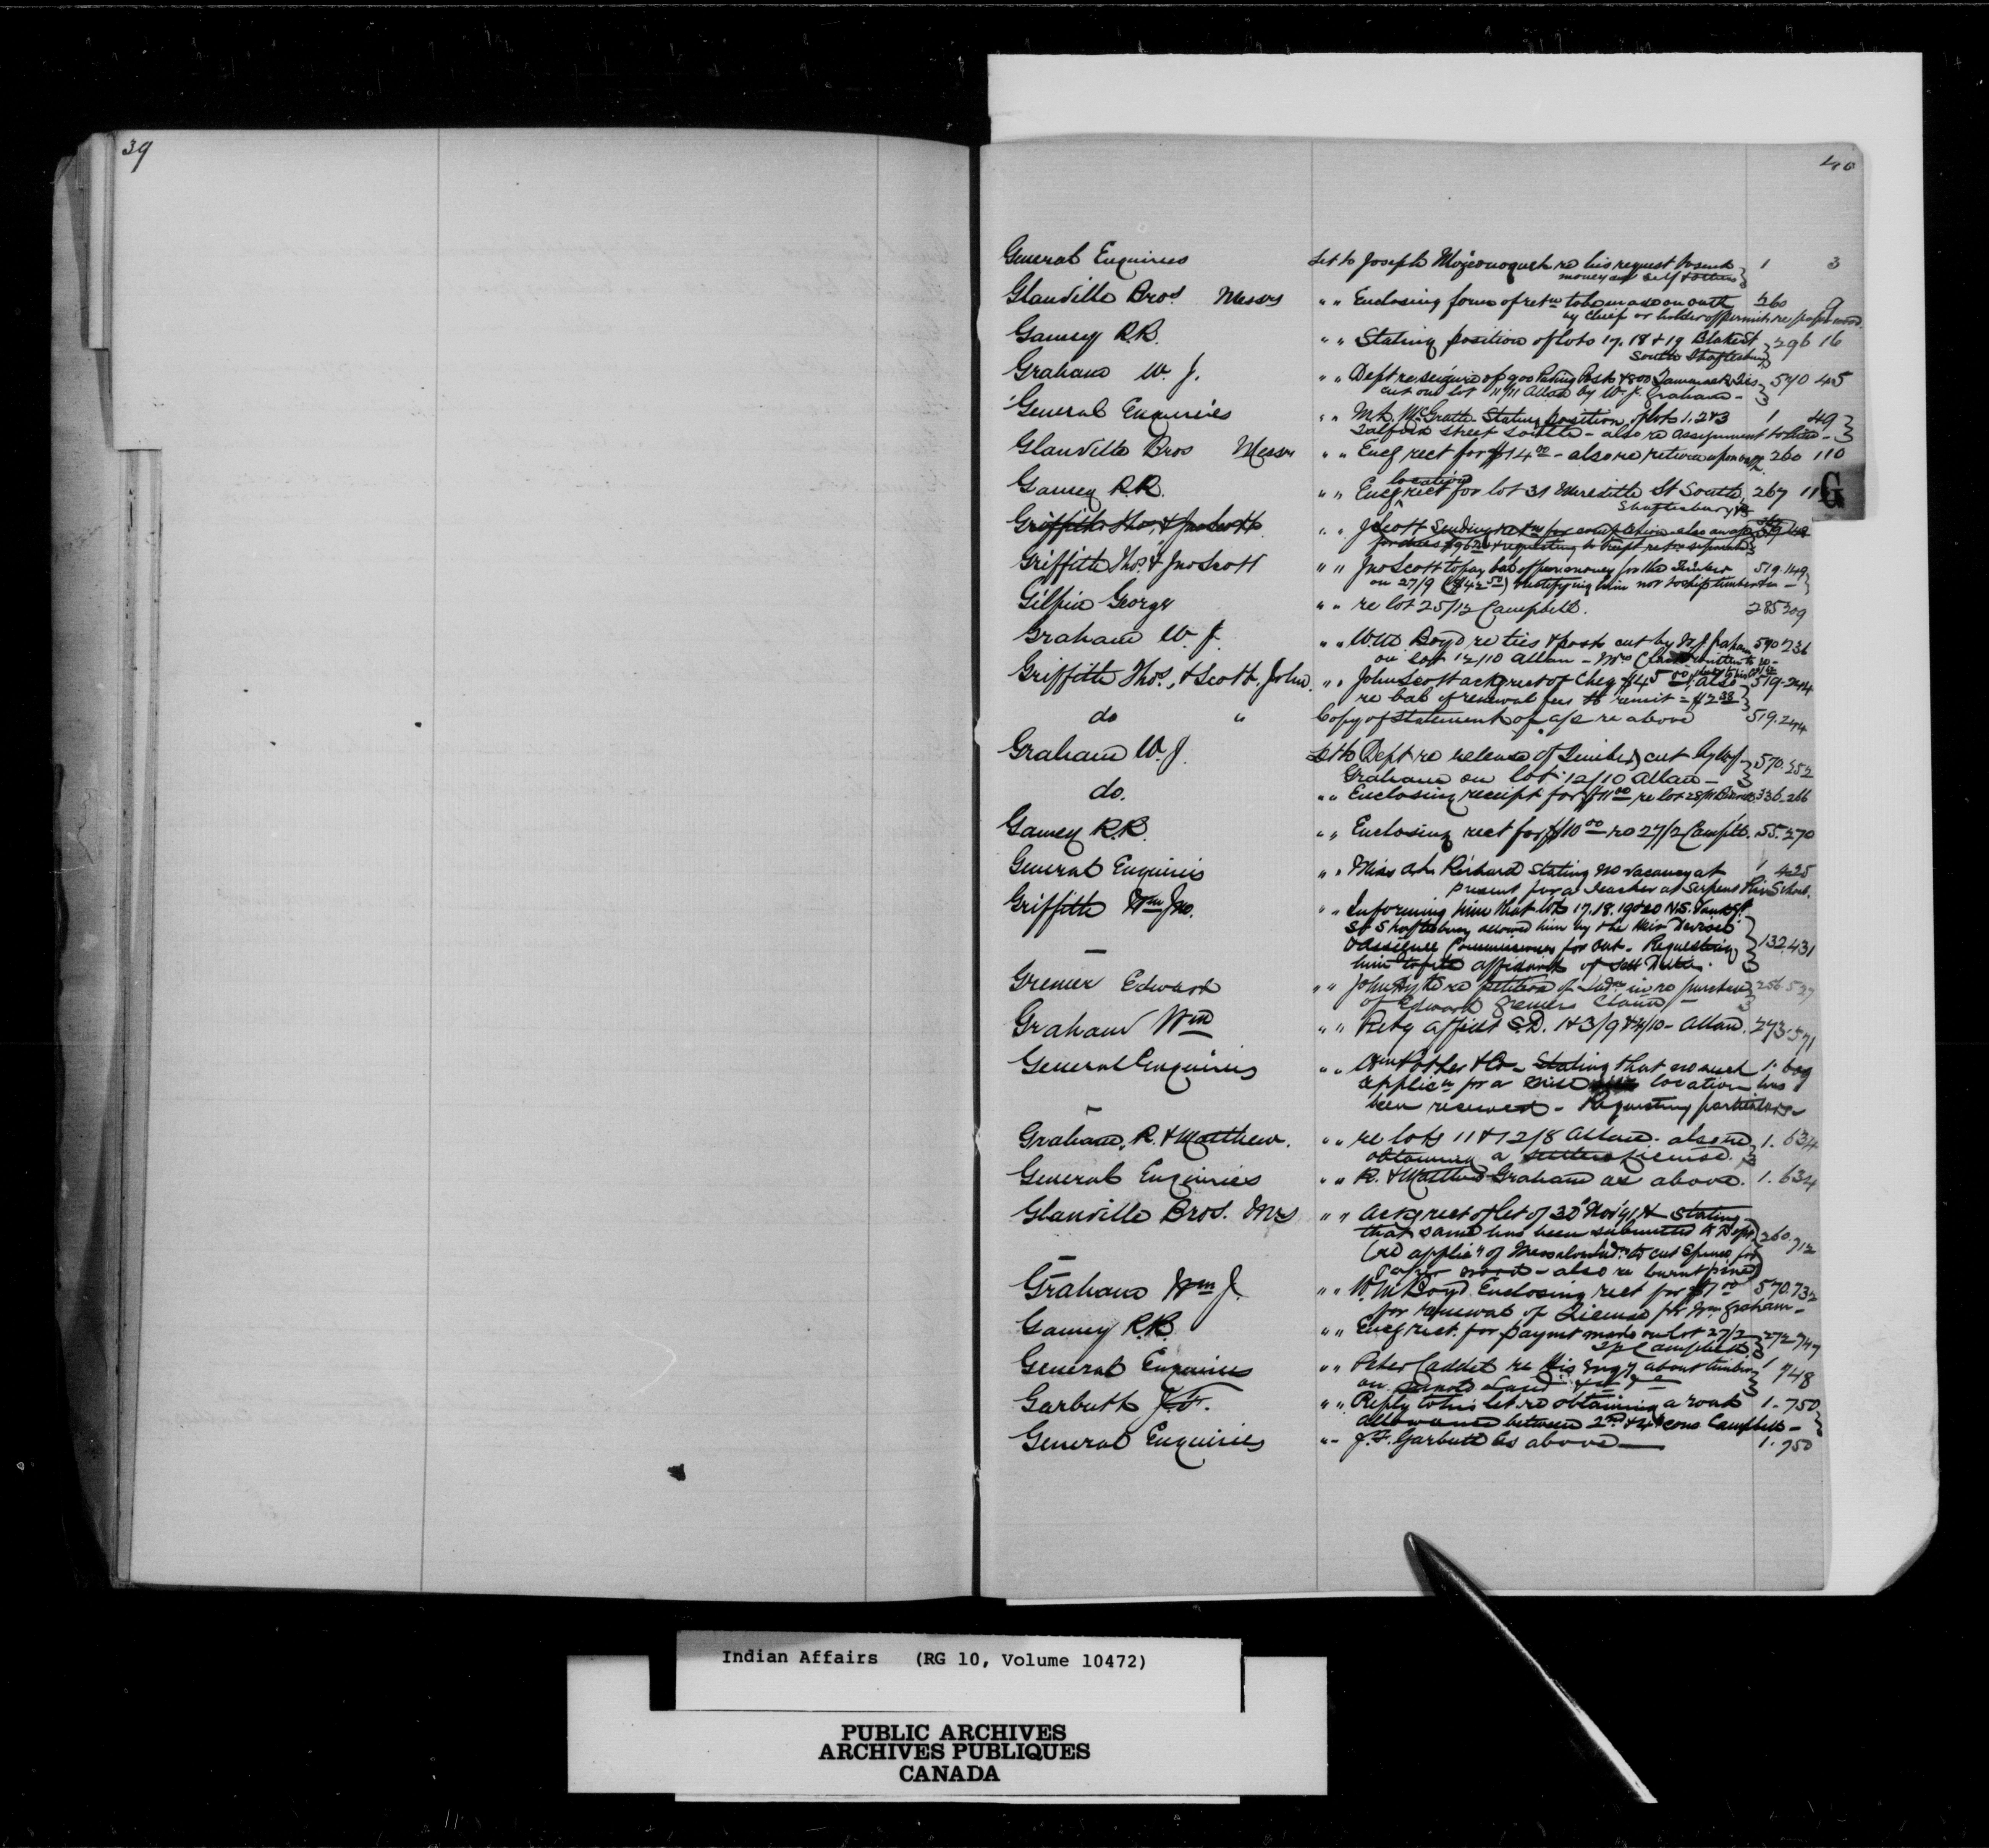 39
40
General Enquiries Let to Joseph re his request to send 1 3
money and self & others
Glanville Bros Messrs " " Enclosing form of retn to be made on oath 260 9
by chief or holder of permits re paper wood
Gamey R.R. " " Stating position of lots 17. 18 & 19 Blake St 296 16
South Shaftesbury
Graham W. J. " " Dept re seizure of 900 Paving Posts & 800 Tamarack Ties 570 45
cut on lot 11/11 Allan by W. J. Graham -
General Enquiries " " McGrath Stating position of lots 1. 2 & 3 1 49
Street South - also re assignment to him -
Glanville Bros Messrs " " Encg rect for $14 00 - also re return upon oath 260 110
location
Gamey R.R. " " Encg rect for lot 31 Meredith St South 267
Shaftesbury
G
Griffith Thos. & Jno Scott " " J Scott Sending retn for completion also
for dues & requesting
Griffith Thos. & Jno Scott " " Jno Scott to pay bal of money for the timber 519.149
on 27/9 ($42 50) & notifying him not to ship timber
Gilpin George " " re lot 25/12 Campbell. 285 209
Graham W. J. " " W.M. Boyd re ties & posts cut by W. J. Graham 570 236
on Lot 12/10 Allan -
Griffith Thos., & Scott, John. " " John Scott ackg rect of Cheq $45 00 also 519.244
re bal of renewal fees to remit = $2 38
do " Copy of Statement of a/c re above 519.244
Graham W. J. Let to Dept re release of Timber cut by W J 570.252
Graham on lot 12/10 Allan -
do. " " Enclosing receipt for $11 00 re lot 28/11 336.266
Gamey R.R. " " Enclosing rect for $10 00 re 27/2 Campbll. 55.270
General Enquiries " " Miss Richard stating no vacancy at 1 425
present for a teacher at Serpent Riv School.
Griffith Wm Jno. " " Informing him that lots 17. 18. 19 & 20 N.S.
St Shaftesbury allowed him by the Heir Devisee
& Assignee Commissioners for Ont. Requesting 132.431
him to file affidavit of Sett Duties.
Grenier Edward " " John re petition of Inds in re purchase 256.527
of Edward Greniers Claim -
Graham Wm " " Retg affidt S.D. 1 & 3/9 & 2/10 - Allan. 273.571
General Enquiries " " & Co - Stating that no such 1. 609
applicn for a mine location has
been received - Requesting particulars -
Graham, R. & Matthew. " " re lots 11 & 12/8 Allan - also re 1. 634
obtaining a settlers license.
General Enquiries " " R. & Matthew Graham as above. 1. 634
Glanville Bros. Mrs " " Ackg rect of let of 30th Nov '91 & stating
that same has been submitted to Dept 260.712
(re applicn of Inds to cut Spruce for
paper wood - also re burnt pine)
Graham Wm J. " " W. M Boyd Enclosing rect for $7 00 570.732
for renewal of License for Wm Graham -
Gamey R.R. " " Encg rect. for paymt made on lot 27/2 272 747
Tp Campbell
General Enquiries " " Peter Caddet re his enqy about timber 1 748
on Land
Garbutt J. F. " " Reply to his let re obtaining a road 1. 750
allowance between 2nd & 4th cons Campbell -
General Enquiries " " J. F. Garbutt as above — 1. 750
Indian Affairs (RG 10, Volume 10472)
PUBLIC ARCHIVES
ARCHIVES PUBLIQUES
CANADA